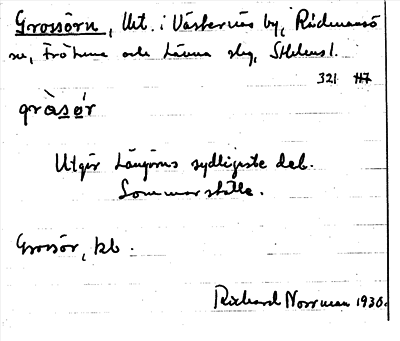 Grossörn, Utt. i Västernäs by, Rådmansö
sn, Frötuna och Länna slg, Sthlms l.
321 117
gràsǿr
Utgör Långörns sydligaste del.
Sommarställe.
Grossör, kb.
Richard Norrman 1930.